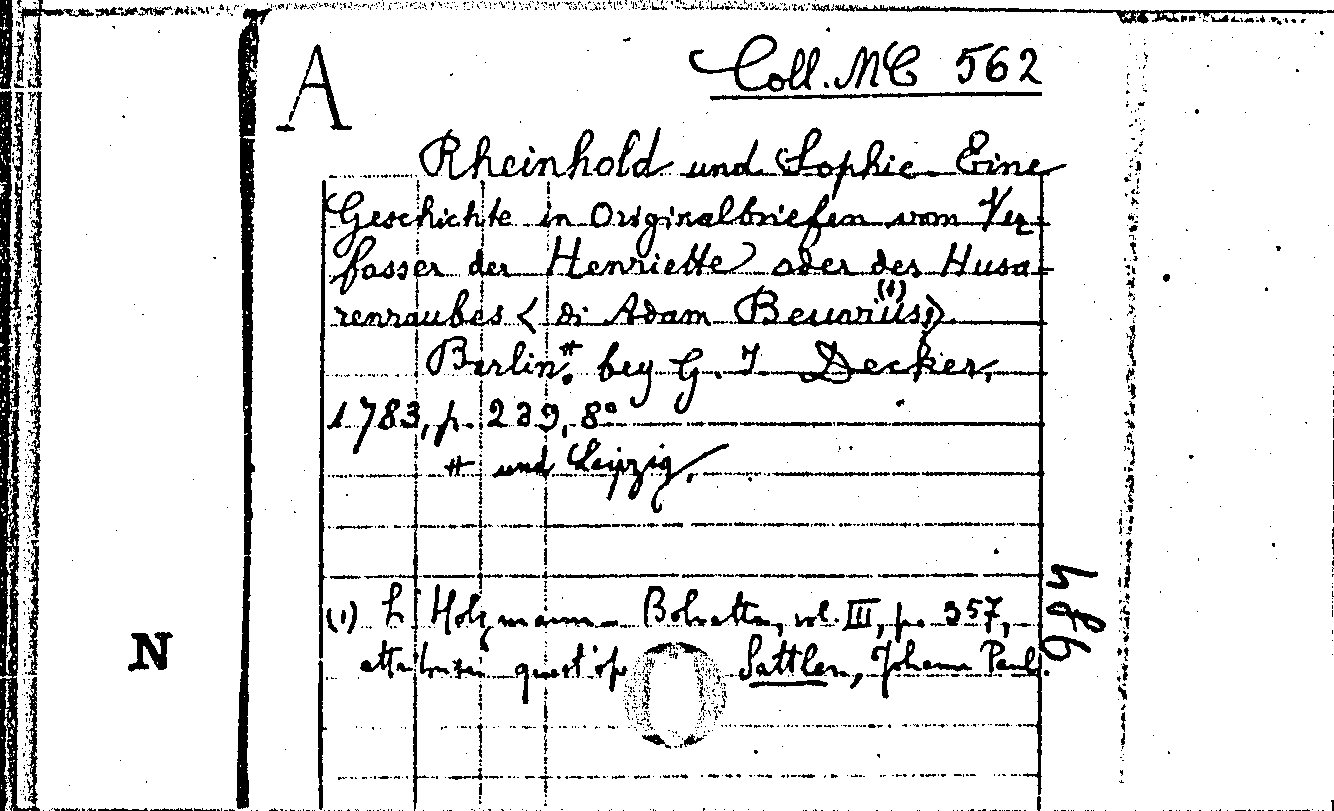 A
Coll. MC 562
Rheinhold und Sophie. Eine
Geschichte in Originalbriefen vom Ver-
fasser der Henriette oder des Husa-
renraubes < di Adam Beuvius (1) >.
Berlin # bey G. J. Decker,
1783, p. 239, 8°
# und Leipzig.
(1) L' Holzmann-Bohatta, vol. III, p. 357,
attribuisce quest'op Sattler, Johann Paul.
N